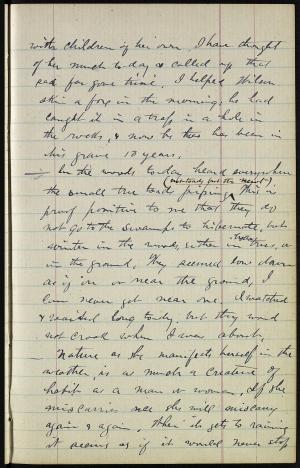 with children of her own. I have thought
of her much to-day & called up that
sad far gone time. I helped Wilson
skin a fox in the morning; he had
caught it in a trap in a hole in
the rocks, & now he too has been in
his grave 18 years.
— In the woods to-day heard everywhere
the small tree toads piping. This is
proof positive to me that they do
not go to the swamps to hibernate, but
winter in the woods, either in trees, or
in the ground. They seemed low down
as if in or near the ground, I
can never get near one. I watched
& waited long to-day, but they would
not croak when I was about.
— Nature as she manifests herself in the
weather, is as much a creature of
habit as a man or woman. If she
miscarries once she will miscarry
again & again. When it gets to raining
it seems as if it would never stop